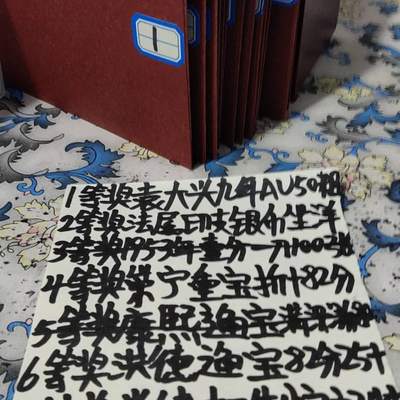 1
1等奖袁大头九年AU50粗
2等奖法属印支银币坐洋
3等奖1953年壹分一刀100张
4等奖崇宁重宝折十82分
5等奖康熙通宝满
6等奖洪德通宝82分25十